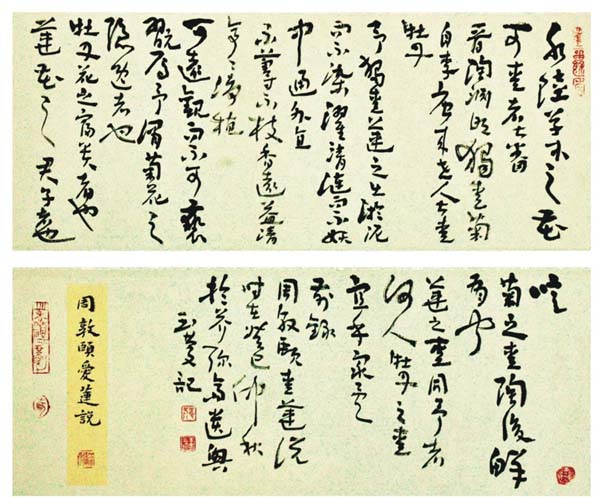 水陸草木之花
可愛者甚蕃
晉陶淵明獨愛菊
自李唐來世人甚愛
牡丹
予獨愛蓮之出淤泥
而不染濯清漣而不妖
中通外直
不蔓不枝香遠益清
亭亭淨植
可遠觀而不可褻
翫焉予謂菊花之
隱逸者也
牡丹花之富貴者也
蓮花之君子者也
噫
菊之愛陶後鮮
有聞
蓮之愛同予者
何人牡丹之愛
宜乎衆矣
錄
周敦頤愛蓮説
時在癸巳仲秋
記
周敦頤愛蓮説